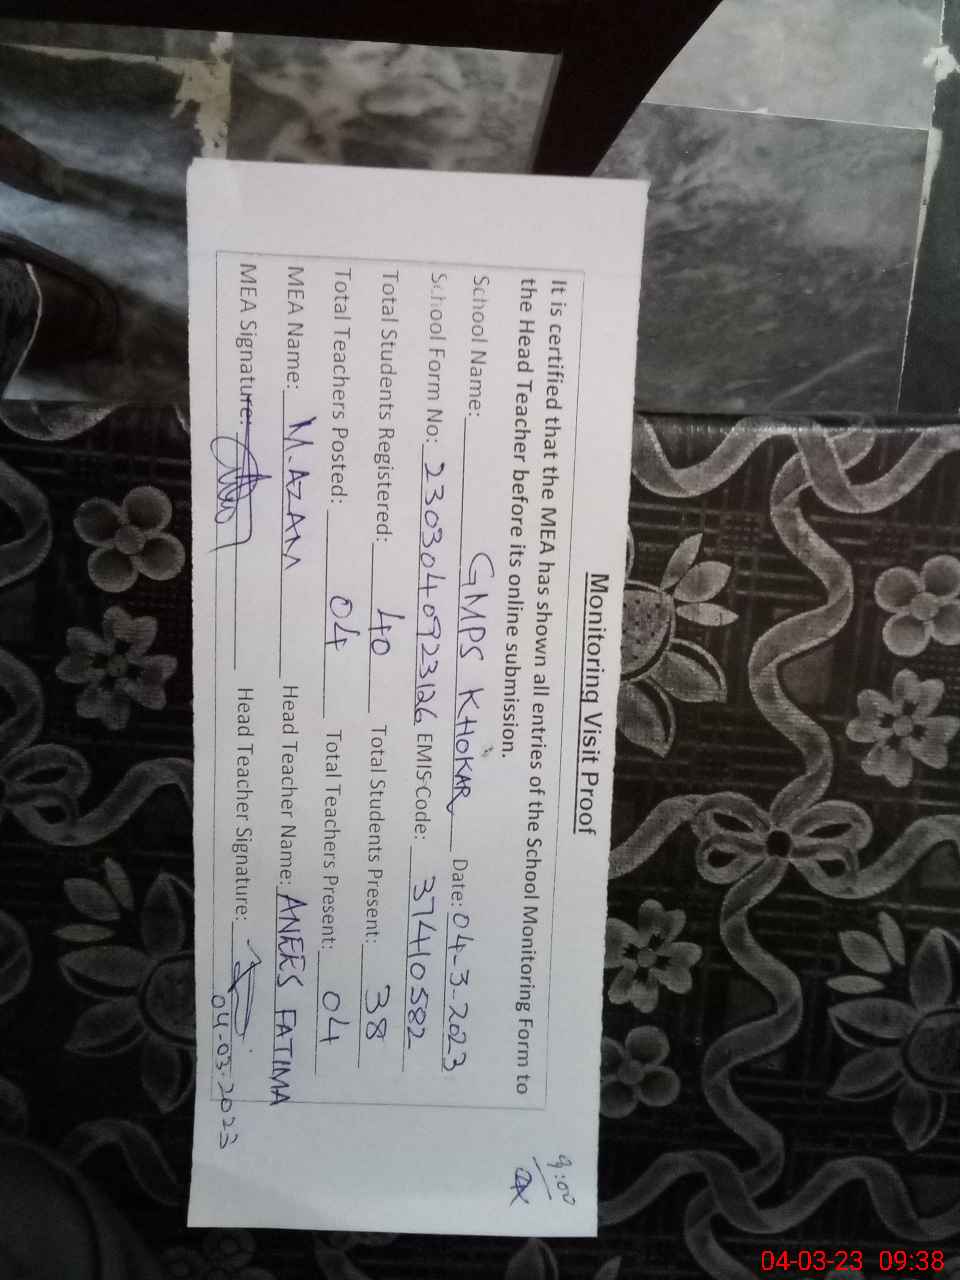 9:00
Monitoring Visit Proof
It is certified that the MEA has shown all entries of the School Monitoring Form to
the Head Teacher before its online submission.
School Name: GMPS KHOKAR Date: 04-3-2023
School Form No: 2303040923126 EMIS-Code: 37410582
Total Students Registered: 40 Total Students Present: 38
Total Teachers Posted: 04 Total Teachers Present: 04
MEA Name: M.AZAM Head Teacher Name: ANEES FATIMA
MEA Signature: Head Teacher Signature:
04-03-2023
04-03-23 09:38